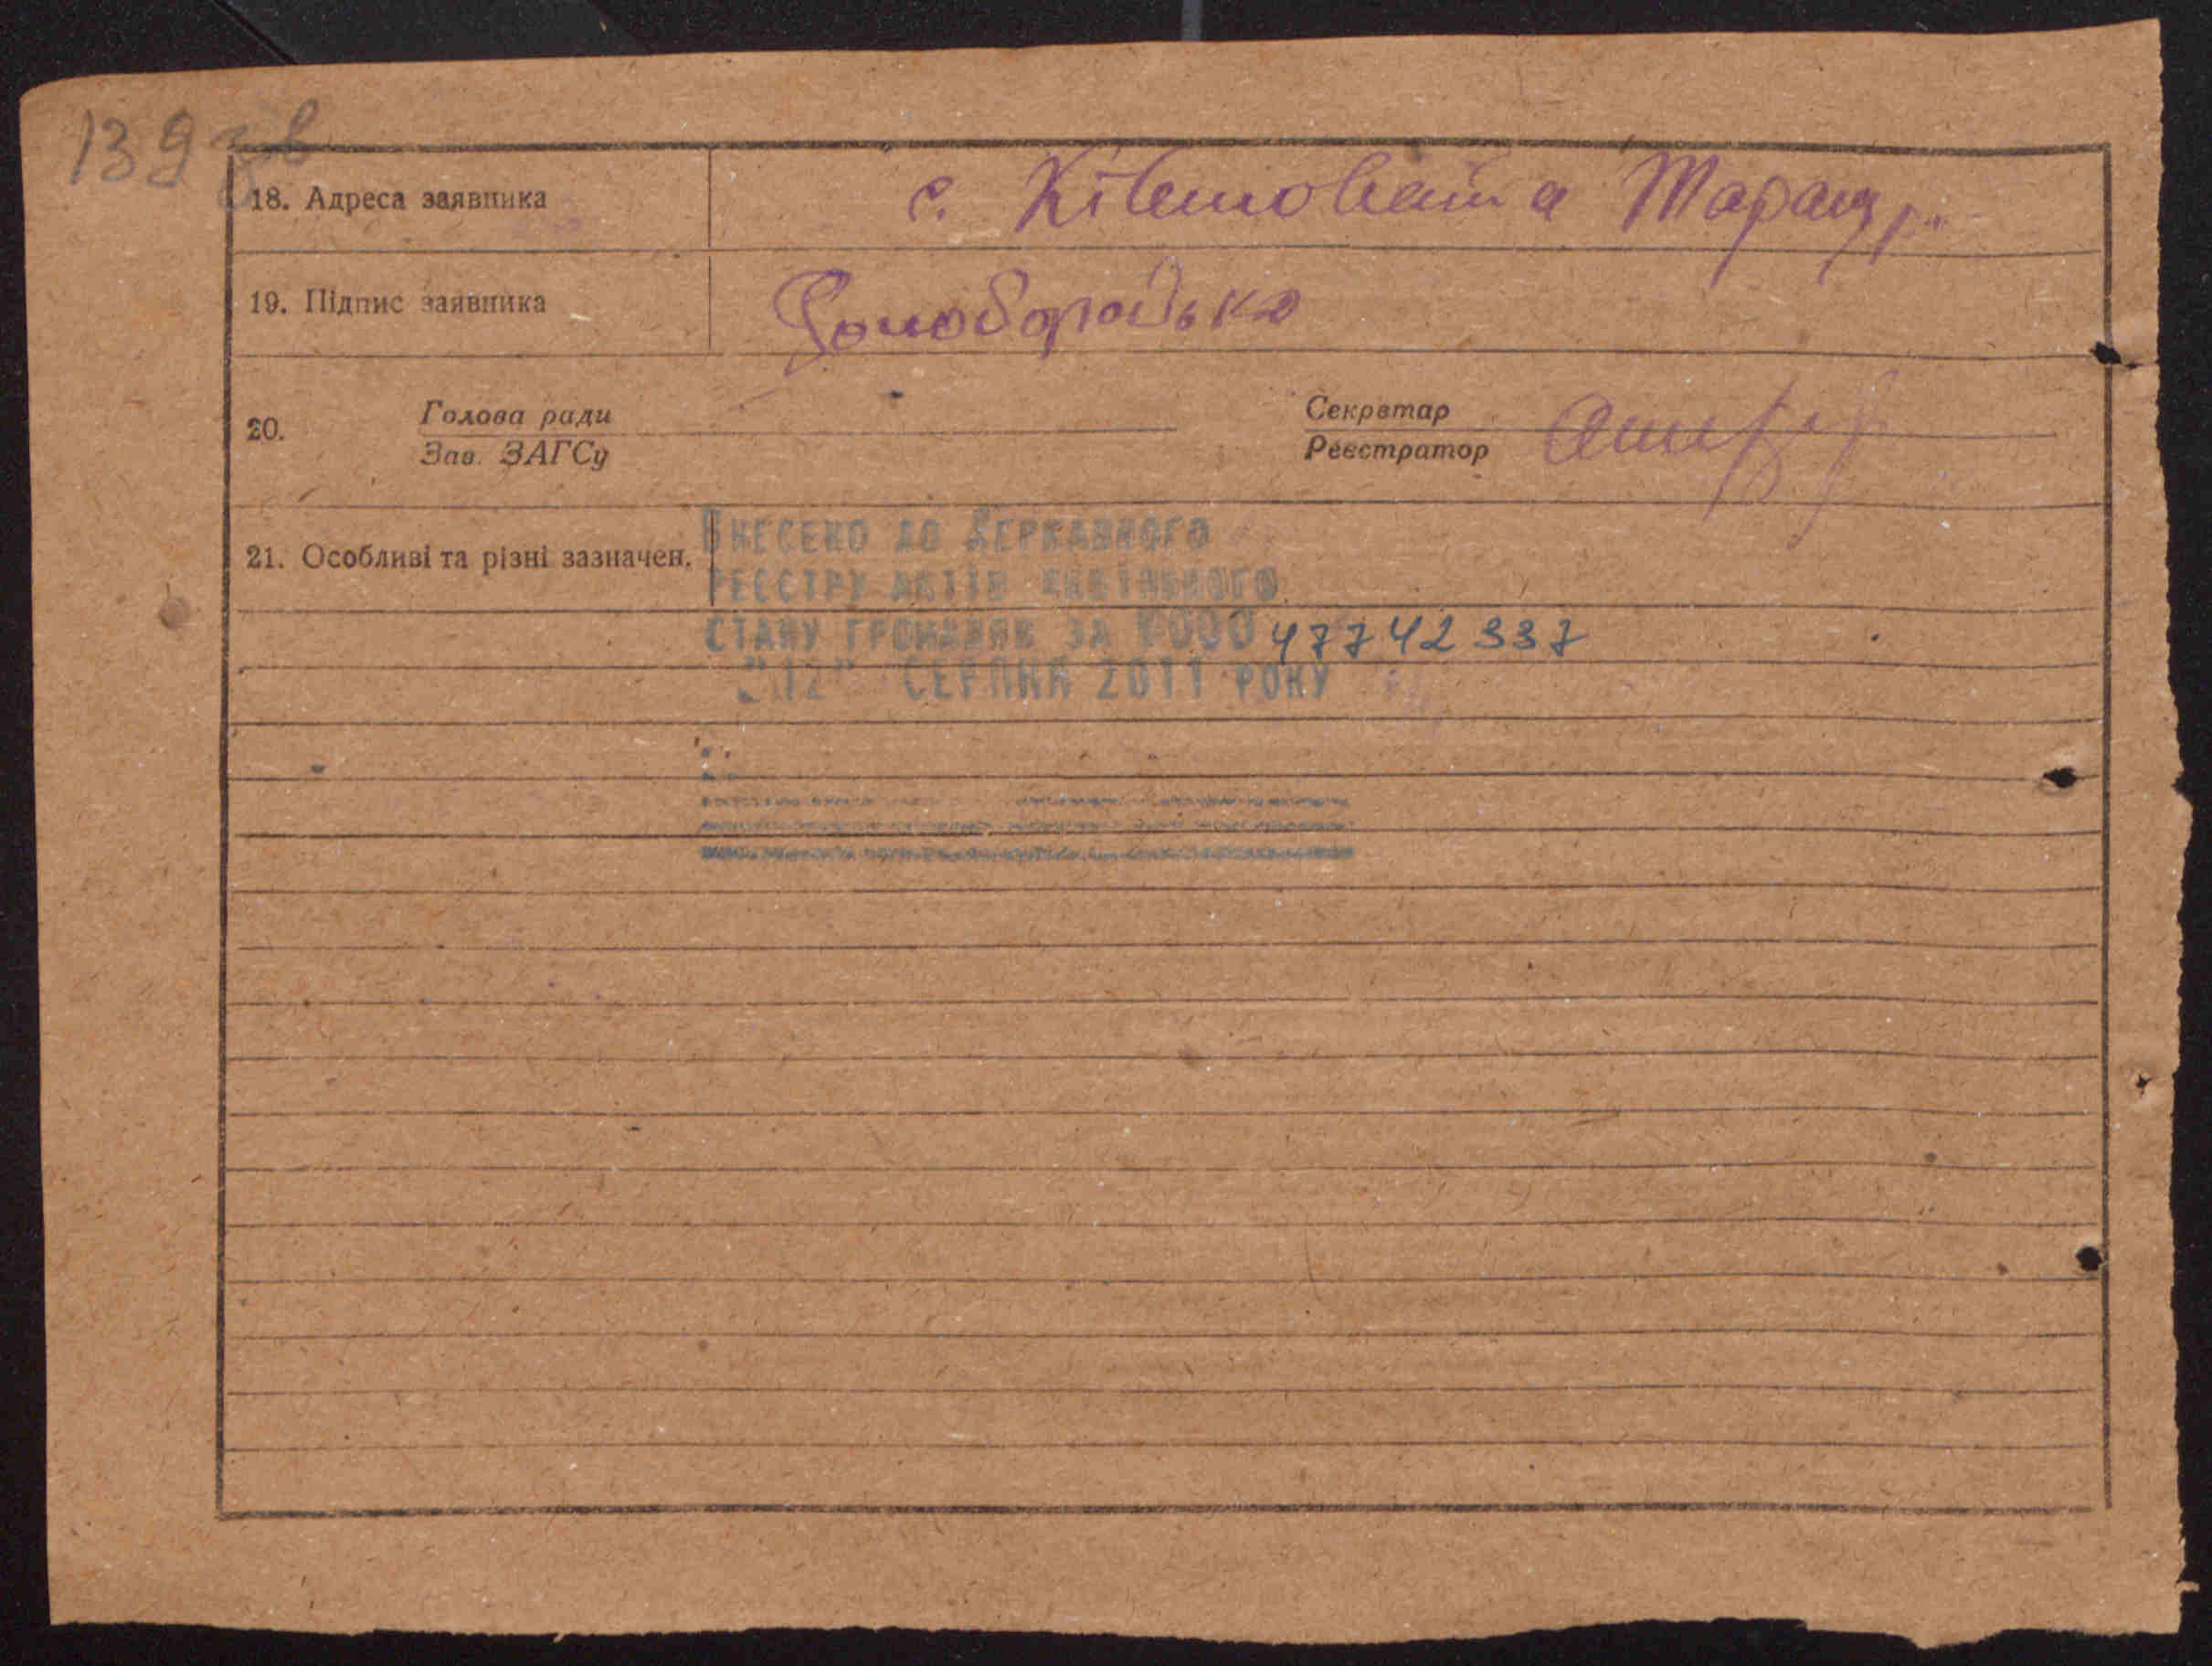 139 зв
18. Адреса заявника с. Ківшовата Таращ. р.
19. Підпис заявника
Голова ради Секретар
20.
Зав. ЗАГСу Реєстратор
ВНЕСЕНО ДО ДЕРЖАВНОГО
21. Особливі та різні зазначен.
РЕЄСТРУ АКТІВ ЦИВІЛЬНОГО
СТАНУ ГРОМАДЯН ЗА №000 47742337
"12" СЕРПНЯ 2011 РОКУ